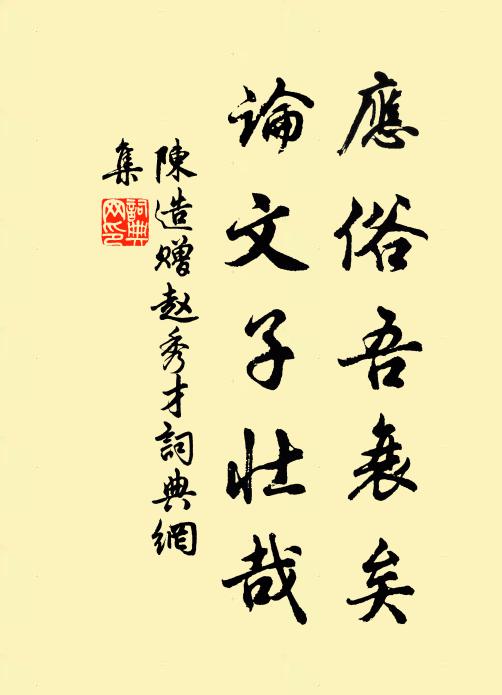 應俗吾衰矣
論文子壯哉
陳造贈赵秀才詞典網
集
詞典
网印